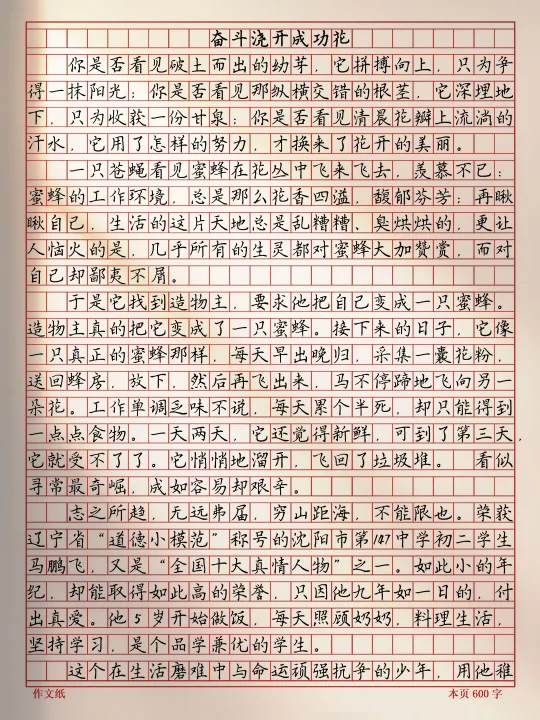 奋斗浇开成功花
你是否看见破土而出的幼芽，它拼搏向上，只为争
得一抹阳光；你是否看见那纵横交错的根茎，它深埋地
下，只为收获一份甘泉；你是否看见清晨花瓣上流淌的
汗水，它用了怎样的努力，才换来了花开的美丽。
一只苍蝇看见蜜蜂在花丛中飞来飞去，羡慕不已：
蜜蜂的工作环境，总是那么花香四溢，馥郁芬芳；再瞅
瞅自己，生活的这片天地总是乱糟糟、臭烘烘的，更让
人恼火的是，几乎所有的生灵都对蜜蜂大加赞赏，而对
自己却鄙夷不屑。
于是它找到造物主，要求他把自己变成一只蜜蜂。
造物主真的把它变成了一只蜜蜂。接下来的日子，它像
一只真正的蜜蜂那样，每天早出晚归，采集一囊花粉，
送回蜂房，放下，然后再飞出来，马不停蹄地飞向另一
朵花。工作单调乏味不说，每天累个半死，却只能得到
一点点食物。一天两天，它还觉得新鲜，可到了第三天，
它就受不了了。它悄悄地溜开，飞回了垃圾堆。 看似
寻常最奇崛，成如容易却艰辛。
志之所趋，无远弗届，穷山距海，不能限也。荣获
辽宁省“道德小模范”称号的沈阳市第147中学初二学生
马鹏飞，又是“全国十大真情人物”之一。如此小的年
纪，却能取得如此高的荣誉，只因他九年如一日的，付
出真爱。他5岁开始做饭，每天照顾奶奶，料理生活，
坚持学习，是个品学兼优的学生。
这个在生活磨难中与命运顽强抗争的少年，用他稚
作文纸 本页600字